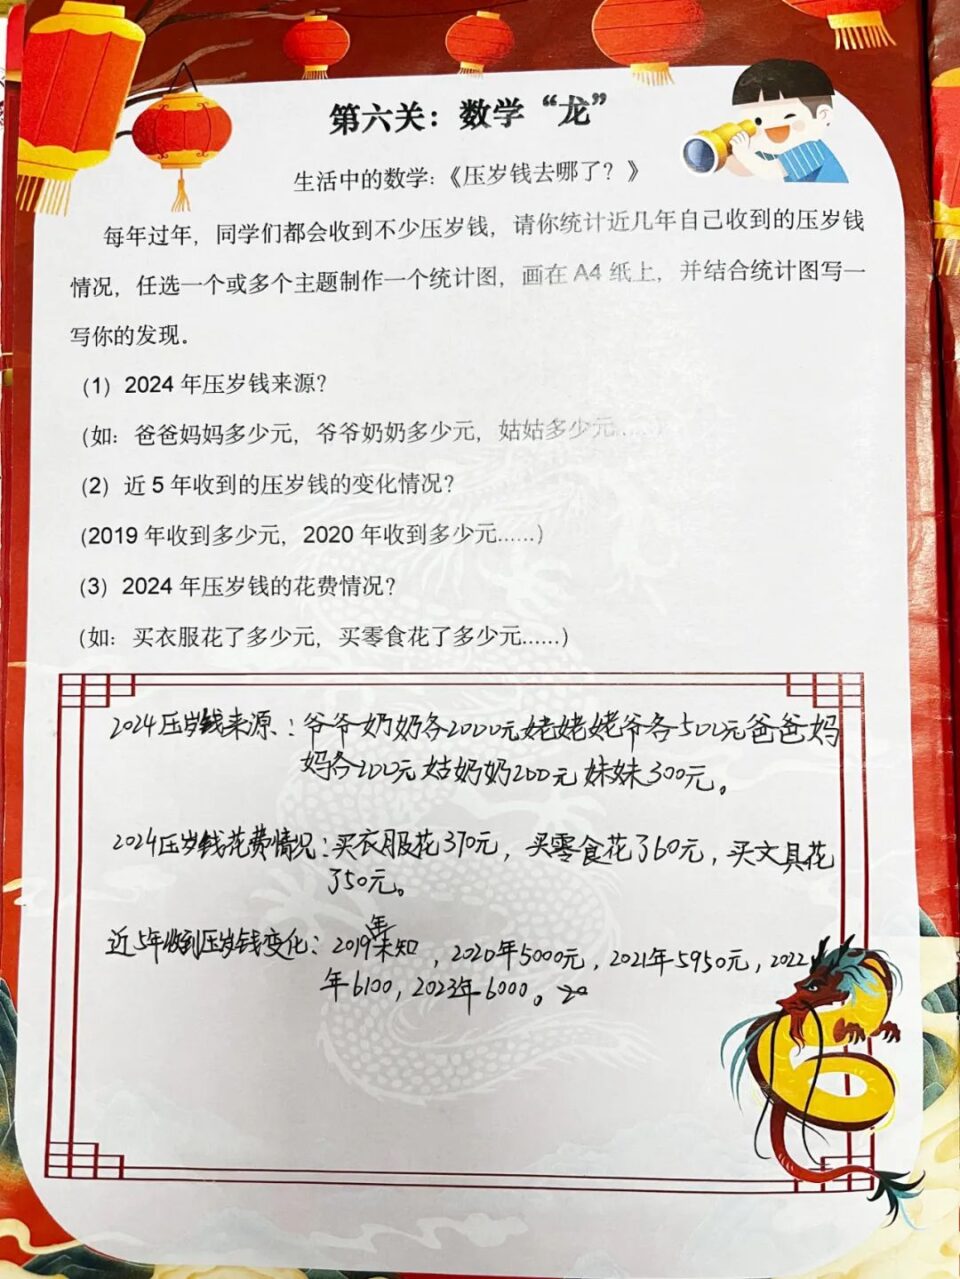 第六关：数学“龙”
生活中的数学：《压岁钱去哪了？》
每年过年，同学们都会收到不少压岁钱，请你统计近几年自己收到的压岁钱
情况，任选一个或多个主题制作一个统计图，画在 A4 纸上，并结合统计图写一
写你的发现。
（1）2024 年压岁钱来源？
（如：爸爸妈妈多少元，爷爷奶奶多少元，姑姑多少元……）
（2）近 5 年收到的压岁钱的变化情况？
（2019 年收到多少元，2020 年收到多少元……）
（3）2024 年压岁钱的花费情况？
（如：买衣服花了多少元，买零食花了多少元……）
2024压岁钱来源：爷爷奶奶各2000元姥姥姥爷各500元爸爸妈
妈各200元姑奶奶200元妹妹300元。
2024压岁钱花费情况：买衣服花370元，买零食花了60元，买文具花
了50元。
近5年收到压岁钱变化：2019年未知，2020年5000元，2021年5950元，2022
年6100，2023年6000。